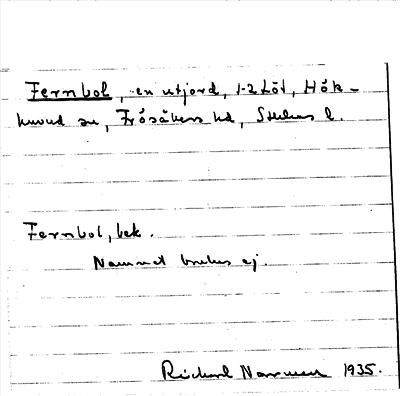 Fernbol, en utjord, 1-2 Löt, Hök-
huvud sn, Frösåkers hd, Sthlms l.
Fernbol, bek.
Namnet brukas ej.
Richard Norrman 1935.